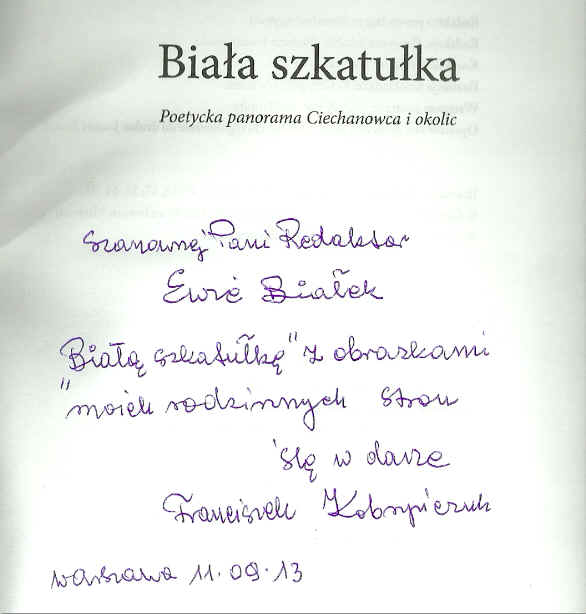 Biała szkatułka
Poetycka panorama Ciechanowca i okolic
Szanownej Pani Redaktor
Ewie Białek
„Białą szkatułkę" z obrazkami
moich rodzinnych stron
ślę w darze
Franciszek Kobryńczuk
Warszawa 11.09.13